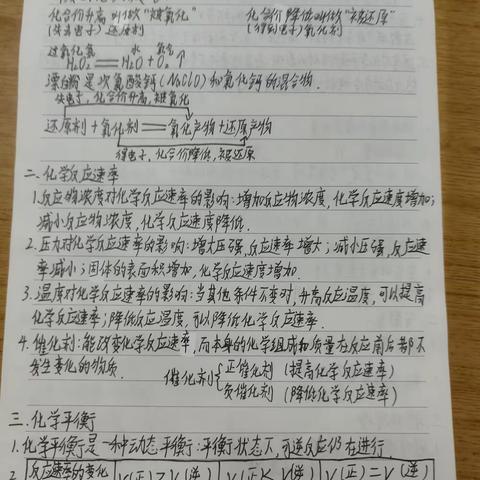 化合价升高叫做“被氧化” 化合价降低叫做“被还原”
(失去电子) 还原剂 (得到电子) 氧化剂
过氧化氢 水 氧气
H₂O₂ == H₂O + O₂ ↑
漂白粉是次氯酸钙(NaClO)和氯化钙的混合物.
失电子, 化合价升高, 被氧化
还原剂 + 氧化剂 == 氧化产物 + 还原产物
得电子, 化合价降低, 被还原
二. 化学反应速率
1.反应物浓度对化学反应速率的影响: 增加反应物浓度, 化学反应速度增加;
减小反应物浓度, 化学反应速度降低.
2. 压力对化学反应速率的影响: 增大压强, 反应速率增大; 减小压强, 反应速
率减小; 固体的表面积增加, 化学反应速度增加.
3. 温度对化学反应速率的影响: 当其他条件不变时, 升高反应温度, 可以提高
化学反应速率; 降低反应温度, 可以降低化学反应速率.
4. 催化剂: 能改变化学反应速率, 而本身的化学组成和质量在反应前后都不
发生变化的物质.
催化剂 { 正催化剂 (提高化学反应速率)
负催化剂 (降低化学反应速率)
三. 化学平衡
1. 化学平衡是一种动态平衡: 平衡状态下, 可逆反应仍在进行.
2. 反应速率的变化 V(正)>V(逆) V(正)<V(逆) V(正)=V(逆)